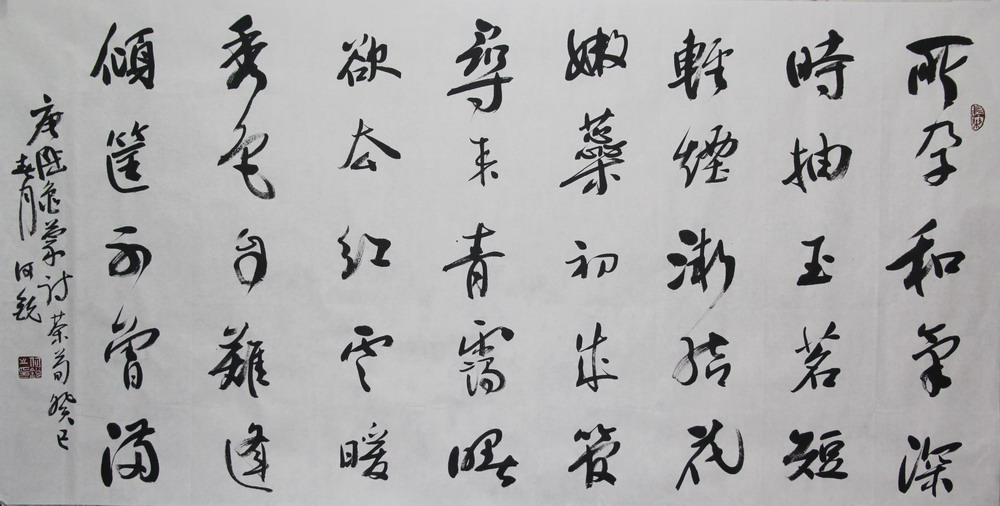 所孕和氣深
時抽玉茗短
輕煙漸結花
嫩蘂初成管
尋来青靄曙
欲去紅雲暖
秀色自難逢
傾筐不曾滿
唐陸龜蒙詩茶筍癸巳
春月